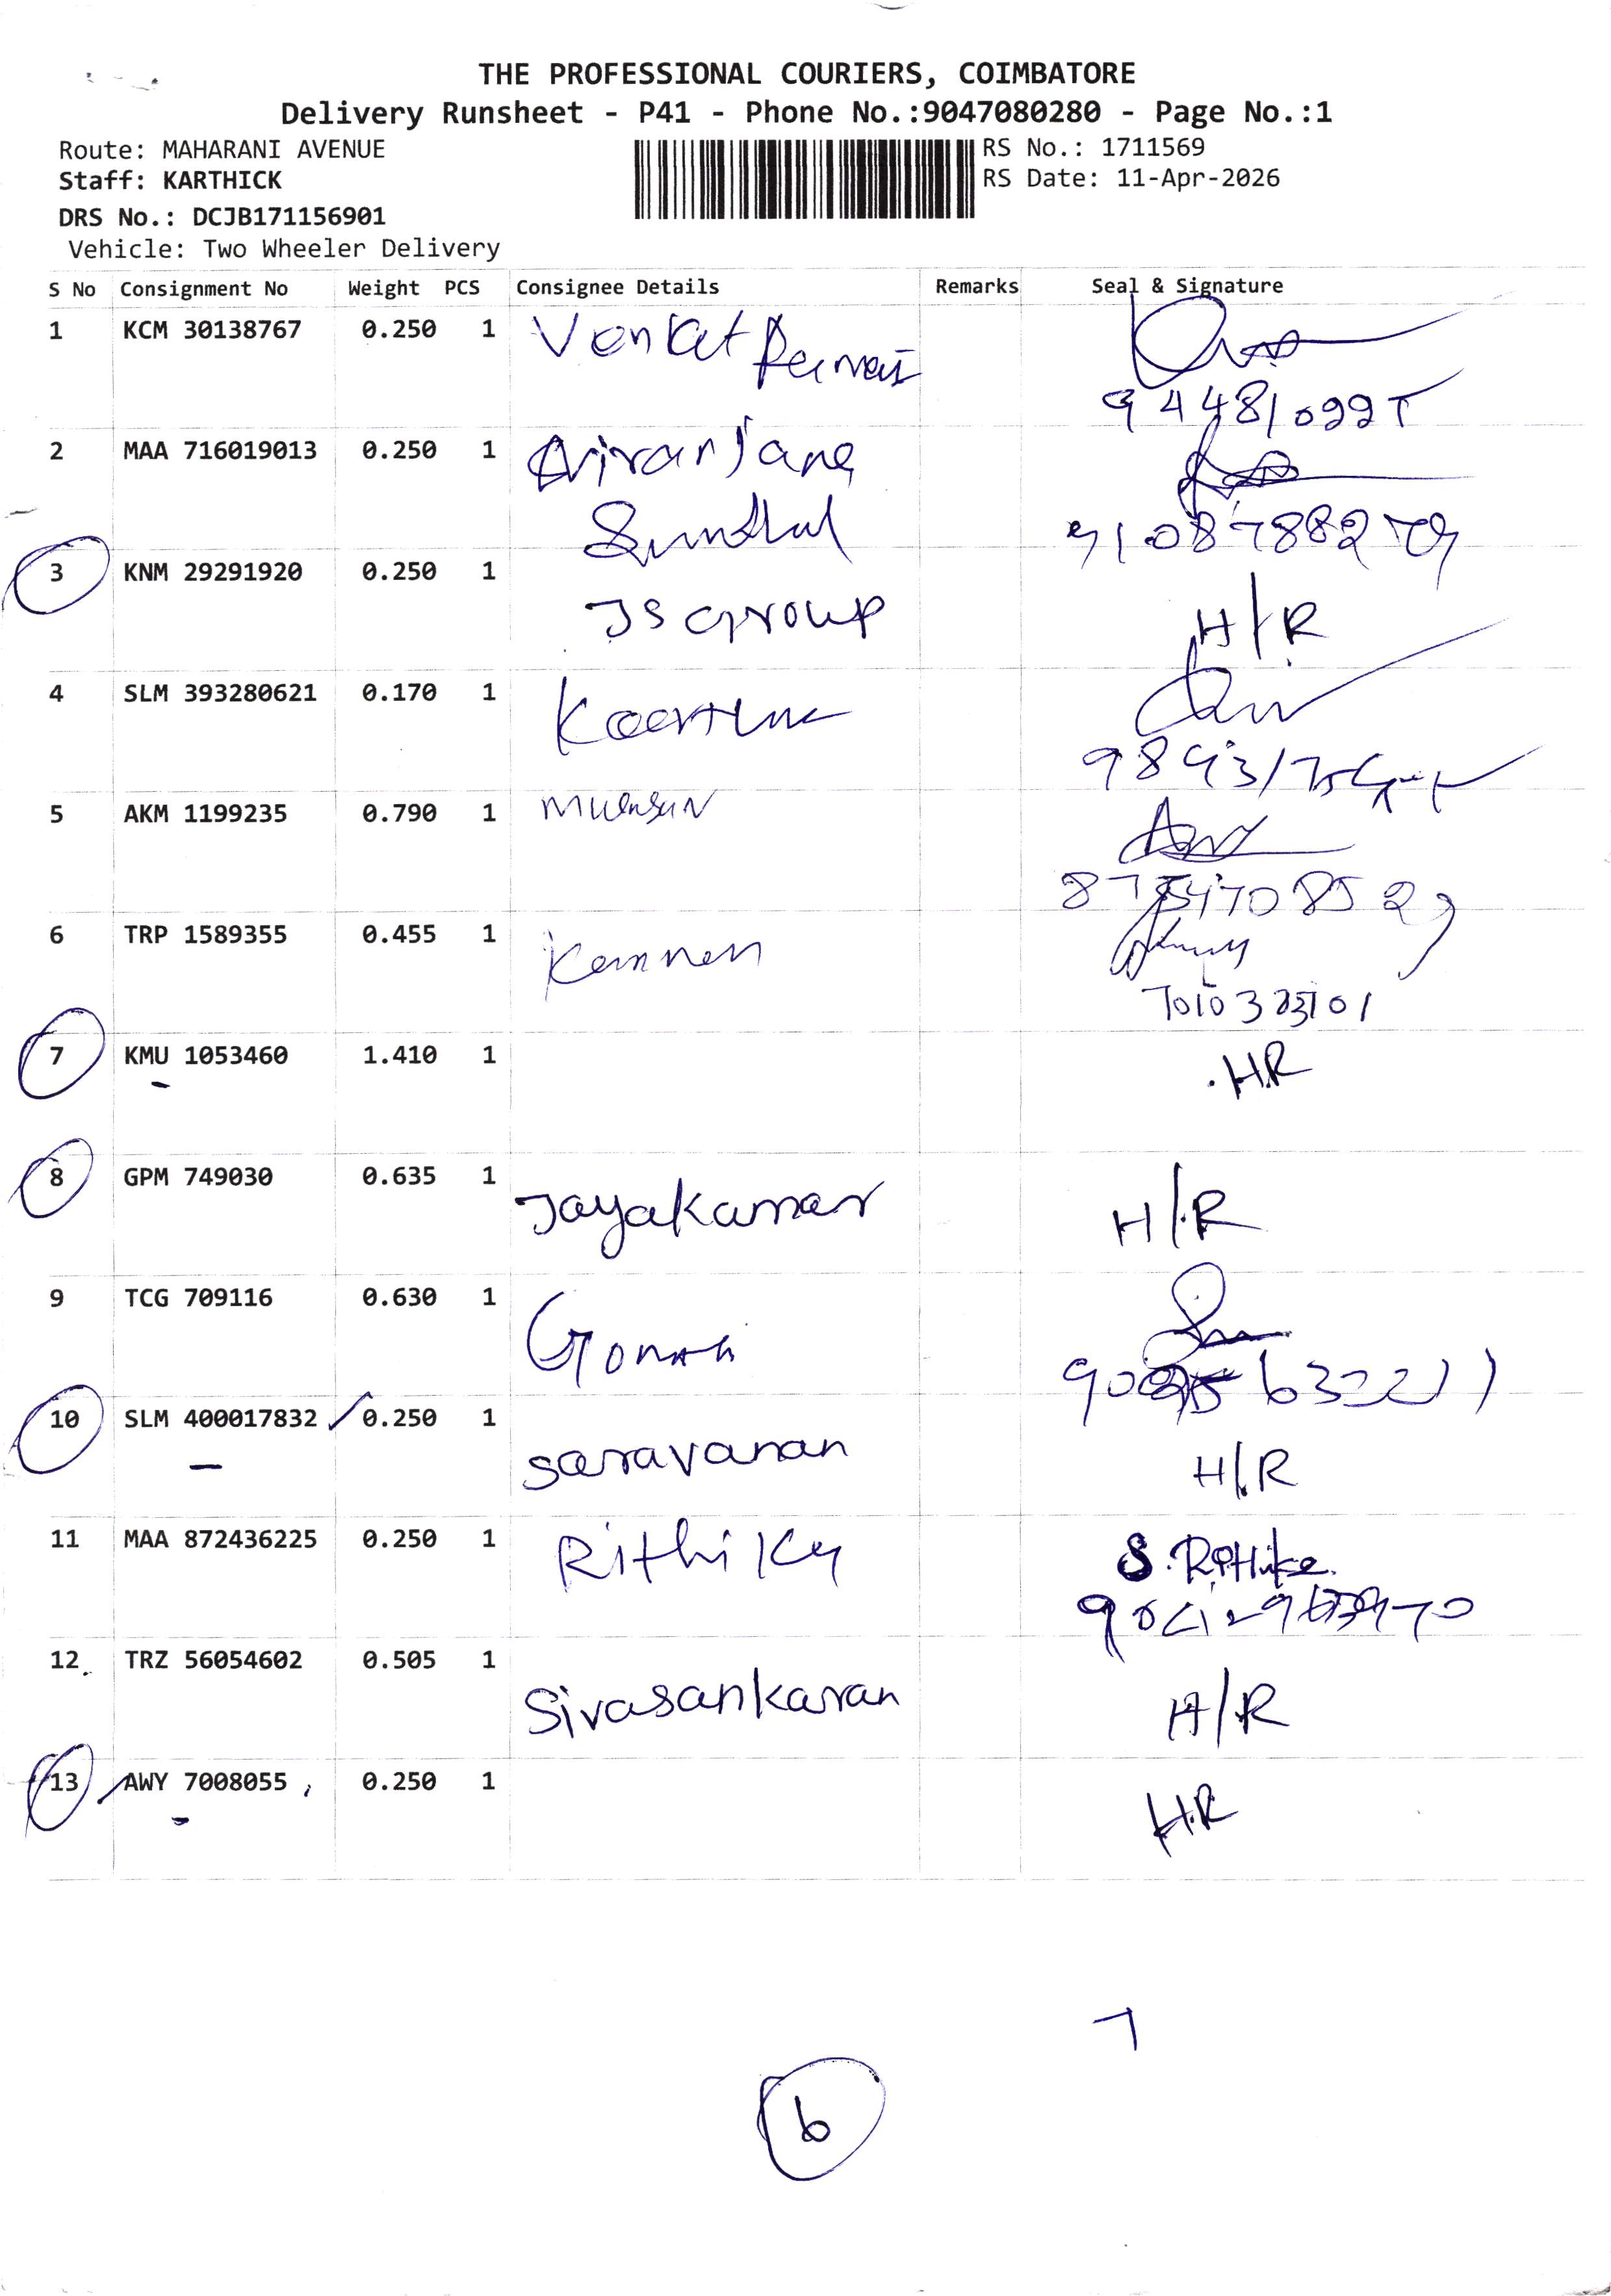 THE PROFESSIONAL COURIERS, COIMBATORE
Delivery Runsheet - P41 - Phone No.:9047080280 - Page No.:1
Route: MAHARANI AVENUE
RS No.: 1711569
Staff: KARTHICK
RS Date: 11-Apr-2026
DRS No.: DCJB171156901
Vehicle: Two Wheeler Delivery
S No Consignment No Weight PCS Consignee Details Remarks Seal & Signature
1 KCM 30138767 0.250 1 Venkat
2 MAA 716019013 0.250 1
3 KNM 29291920 0.250 1 JS Group H/R
4 SLM 393280621 0.170 1
5 AKM 1199235 0.790 1
6 TRP 1589355 0.455 1 Kannan
7 KMU 1053460 1.410 1 H.R
8 GPM 749030 0.635 1 Jayakumar H/R
9 TCG 709116 0.630 1
10 SLM 400017832 0.250 1 Saravanan H/R
11 MAA 872436225 0.250 1 Rithika S. Rithika
12 TRZ 56054602 0.505 1 Sivasankaran H/R
13 AWY 7008055 0.250 1 H.R
7
6